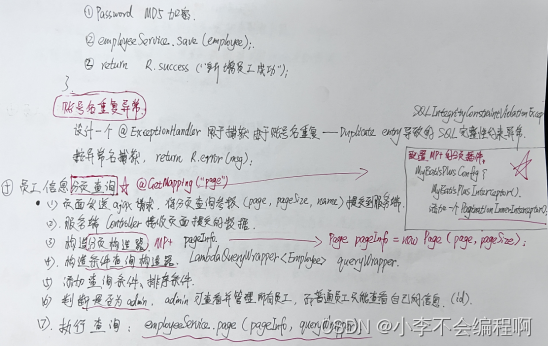 ① Password MD5 加密.
② employeeService.save(employee);
③ return R.success("新增员工成功");
}
账号名重复异常.
SQLIntegrityConstraintViolationExcep
设计一个 @ExceptionHandler 用于捕获由于账号名重复——Duplicate entry导致的SQL完整性约束异常.
按异常名捕获, return R.error(msg);
配置 MP的分页插件.
MyBatisPlusConfig {
MyBatisPlusInterceptor().
添加一个 PaginationInnerInterceptor().
员工信息分页查询 @GetMapping("page")
(1) 页面发送ajax请求, 将分页查询参数 (page, pageSize, name) 提交到服务端.
(2) 服务端 Controller 接收页面提交的数据.
(3) 构造分页构造器 MP+ pageInfo. Page pageInfo = new Page(page, pageSize);
(4) 构造条件查询构造器. LambdaQueryWrapper<Employee> queryWrapper.
(5) 添加查询条件, 排序条件.
(6) 判断是否为admin, admin可查看并管理所有员工, 而普通员工只能查看自己的信息. (id).
(7). 执行查询: employeeService.page(pageInfo, queryWrapper)
CSDN @小李不会编程啊